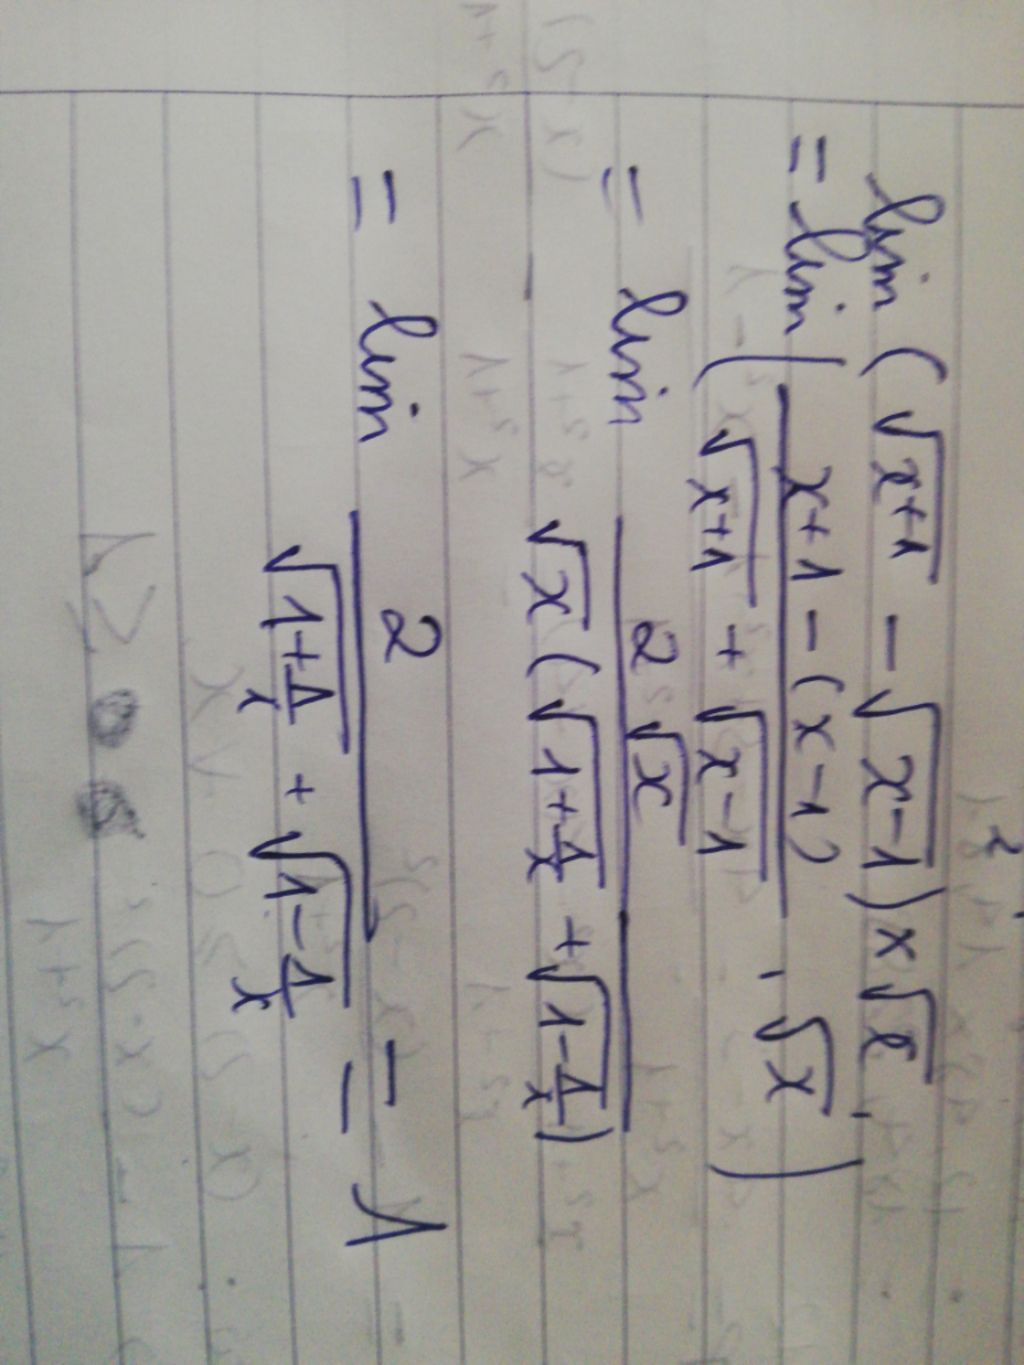 lim (√(x+1) − √(x−1)) × √x
= lim ( (x+1−(x−1)) / (√(x+1) + √(x−1)) · √x )
= lim 2√x / (√x (√(1+1/x) + √(1−1/x)))
= lim 2 / (√(1+1/x) + √(1−1/x)) = 1